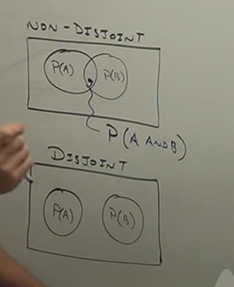 NON-DISJOINT
P(A) P(B)
P(A AND B)
DISJOINT
P(A) P(B)